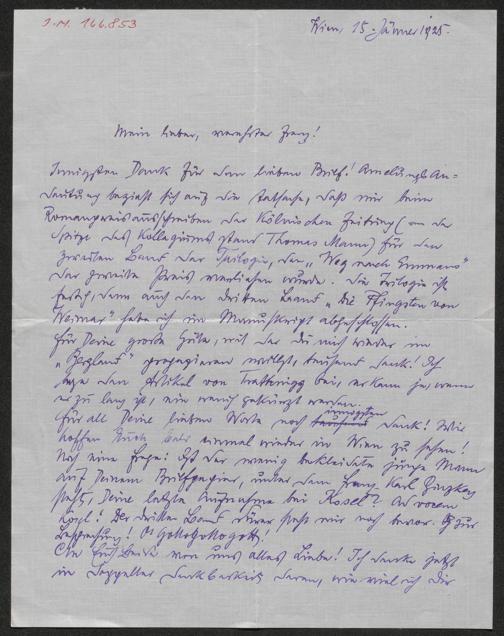 I.N. 166.853
Wien, 15. Jänner 1925.
Mein lieber, verehrter Franz!
Innigsten Dank für den lieben Brief! Amelungs An-
deutung bezieht sich auf die Tatsache, daß mir beim
Romanpreisausschreiben der Kölnischen Zeitung (an der
Spitze des Kollegiums stand Thomas Mann) für den
zweiten Band der Trilogie, den „Weg nach Emmaus"
der zweite Preis verliehen wurde. Die Trilogie ist
fertig, denn auch den dritten Band „die Pfingsten von
Weimar" habe ich im Manuskript abgeschlossen.
Für Deine große Güte, mit der Du mich wieder im
„Bergland" propagieren willst, tausend Dank! Ich
lege den Artikel von Trathnigg bei, er kann ja, wenn
er zu lang ist, ein wenig gekürzt werden.
Für all Deine lieben Worte noch innigsten Dank! Wir
hoffen Euch einmal wieder in Wien zu sehen!
Noch eine Frage: Ist der wenig bekleidete junge Mann
auf Deinem Briefpapier, unter dem Franz Karl Ginzkey
steht, Deine letzte Aufnahme bei Kosel?
Der dritte Band steht mir noch bevor. zur
Besprechung! O Gottogottogott!
von uns alles Liebe! Ich denke jetzt
in doppelter Dankbarkeit daran, wie viel ich Dir